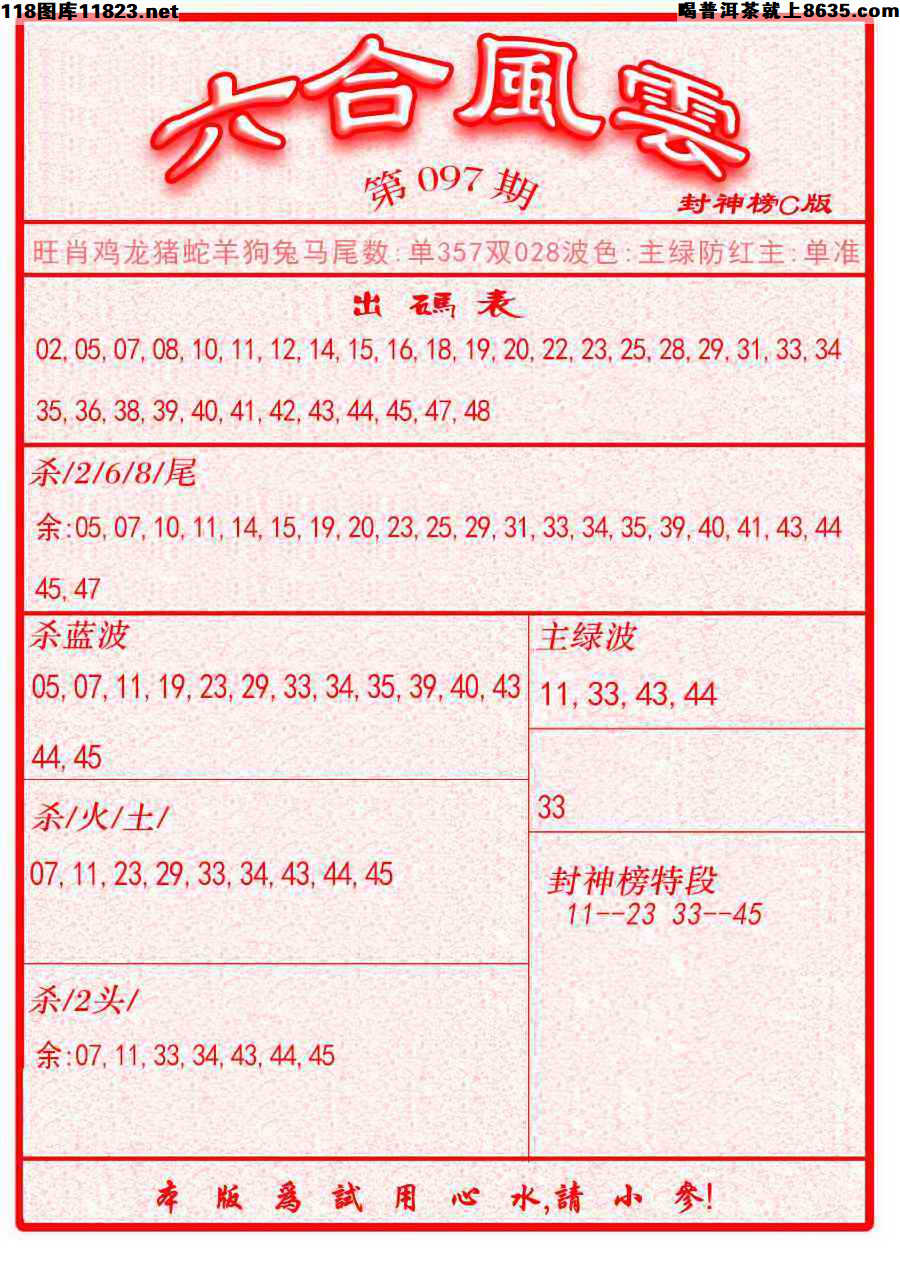 118图库11823.net
喝普洱茶就上8635.com
六合風雲
第097期
封神榜C版
旺肖鸡龙猪蛇羊狗兔马尾数:单357双028波色:主绿防红主:单准
出碼表
02,05,07,08,10,11,12,14,15,16,18,19,20,22,23,25,28,29,31,33,34
35,36,38,39,40,41,42,43,44,45,47,48
杀/2/6/8/尾
余:05,07,10,11,14,15,19,20,23,25,29,31,33,34,35,39,40,41,43,44
45,47
杀蓝波
05,07,11,19,23,29,33,34,35,39,40,43
44,45
主绿波
11,33,43,44
33
杀/火/土/
07,11,23,29,33,34,43,44,45
封神榜特段
11--23 33--45
杀/2头/
余:07,11,33,34,43,44,45
本版爲試用心水,請小參!